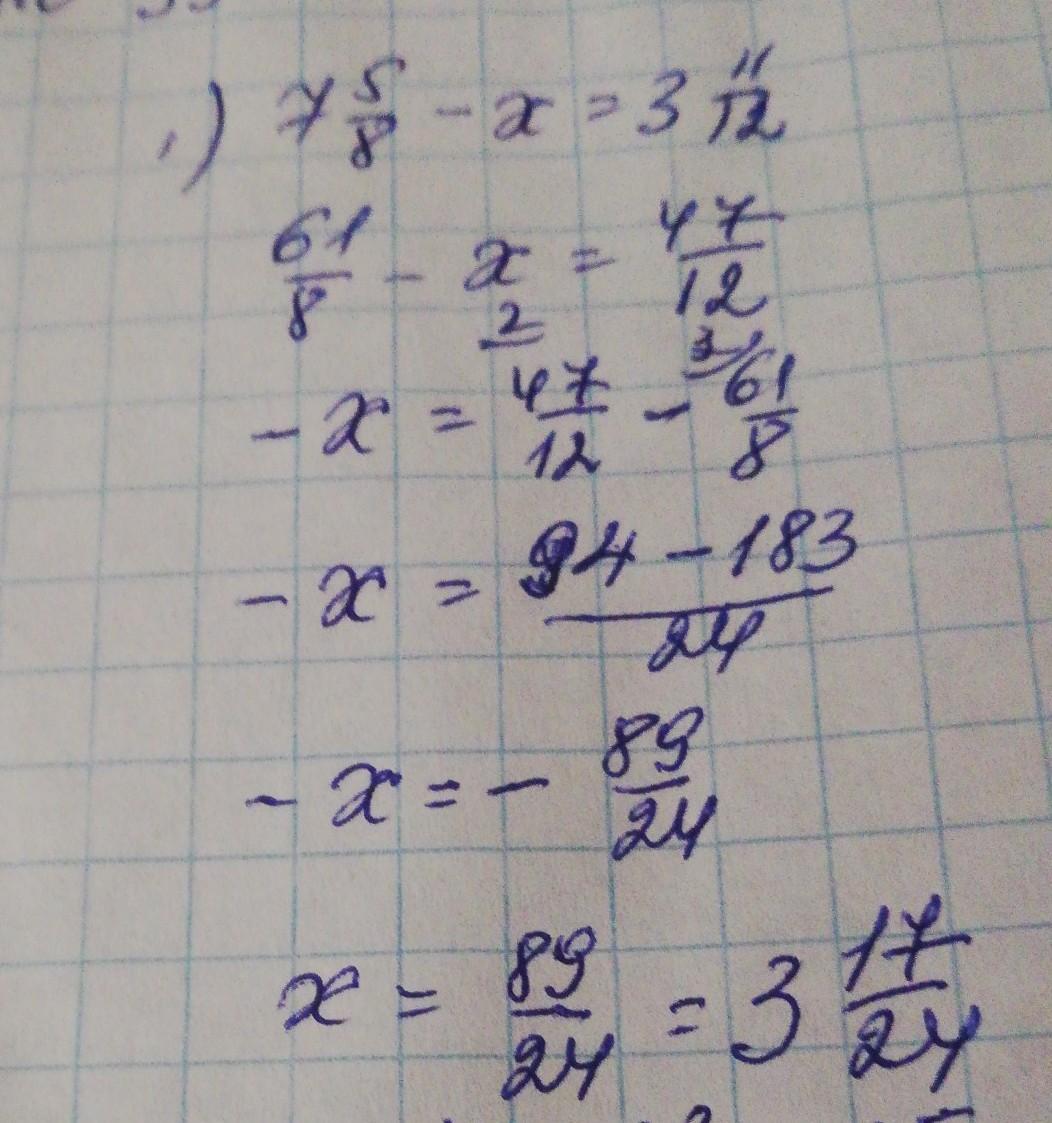 1) 7 5/8 - x = 3 11/12
61/8 - x = 47/12
-x = 2 47/12 - 3 61/8
-x = 94 - 183 / 24
-x = - 89/24
x = 89/24 = 3 17/24